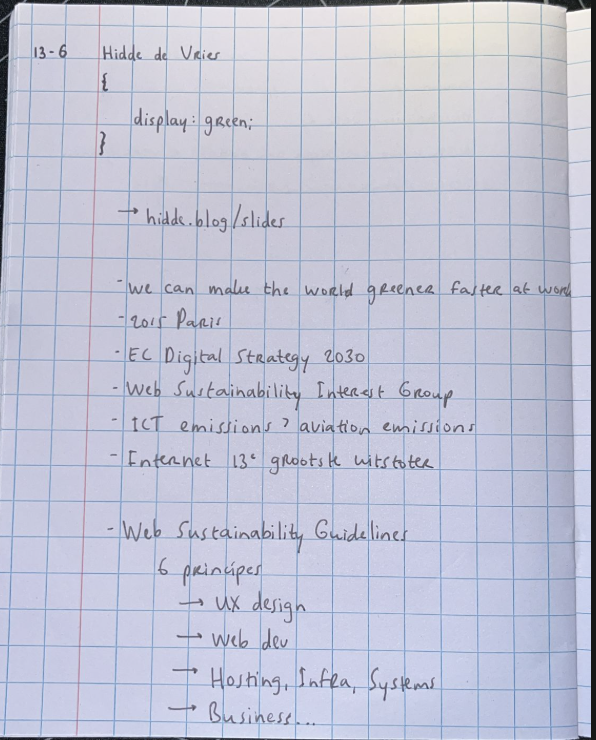 13-6 Hidde de Vries
{
display: green;
}
→ hidde.blog/slides
- we can make the world greener faster at work
- 2015 Paris
- EC Digital Strategy 2030
- Web Sustainability Interest Group
- ICT emissions > aviation emissions
- Internet 13e grootste uitstoter
- Web Sustainability Guidelines
6 principes
→ UX design
→ Web dev
→ Hosting, Infra, Systems
→ Business...